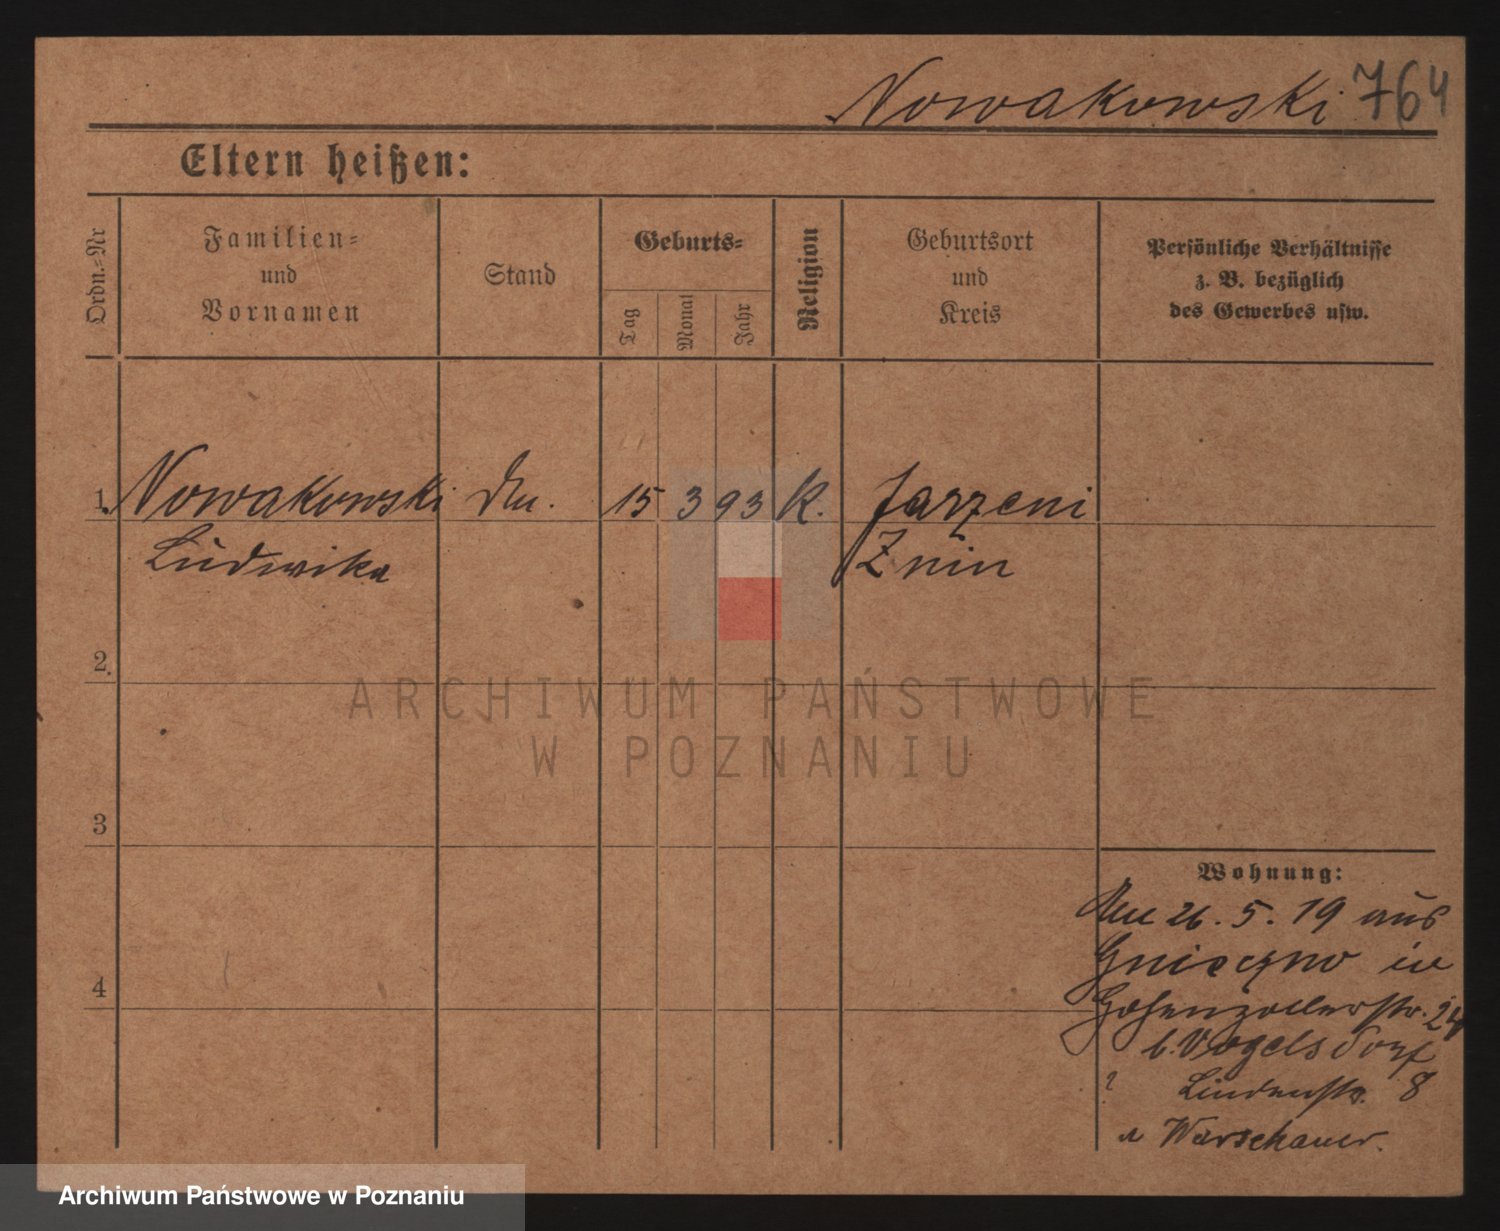 Nowakowski 764
Eltern heißen:
Ordn.=Nr
Familien=
und
Vornamen
Stand
Geburts=
Tag
Monat
Jahr
Religion
Geburtsort
und
Kreis
Persönliche Verhältnisse
z. B. bezüglich
des Gewerbes usw.
1. Nowakowski 15 3 93 K. Jarzeni
Ludwika Znin
2.
3
4
Wohnung:
26. 5. 19 aus
Gnieczno in
Hohenzollerstr. 24
b. Vogelsdorf
? Lindenstr. 8
Warschauer.
ARCHIWUM PAŃSTWOWE
W POZNANIU
Archiwum Państwowe w Poznaniu